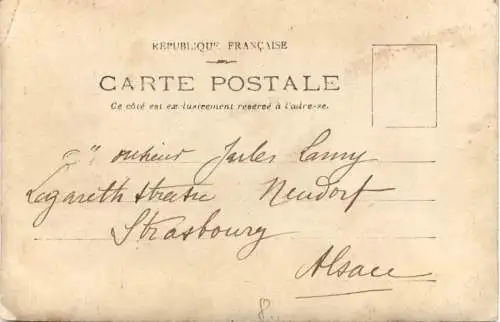 RÉPUBLIQUE FRANÇAISE
CARTE POSTALE
Ce côté est exclusivement réservé à l'adresse.
Monsieur Jules Lamy
Lazareth strasse Neudorf
Strasbourg
Alsace
8.